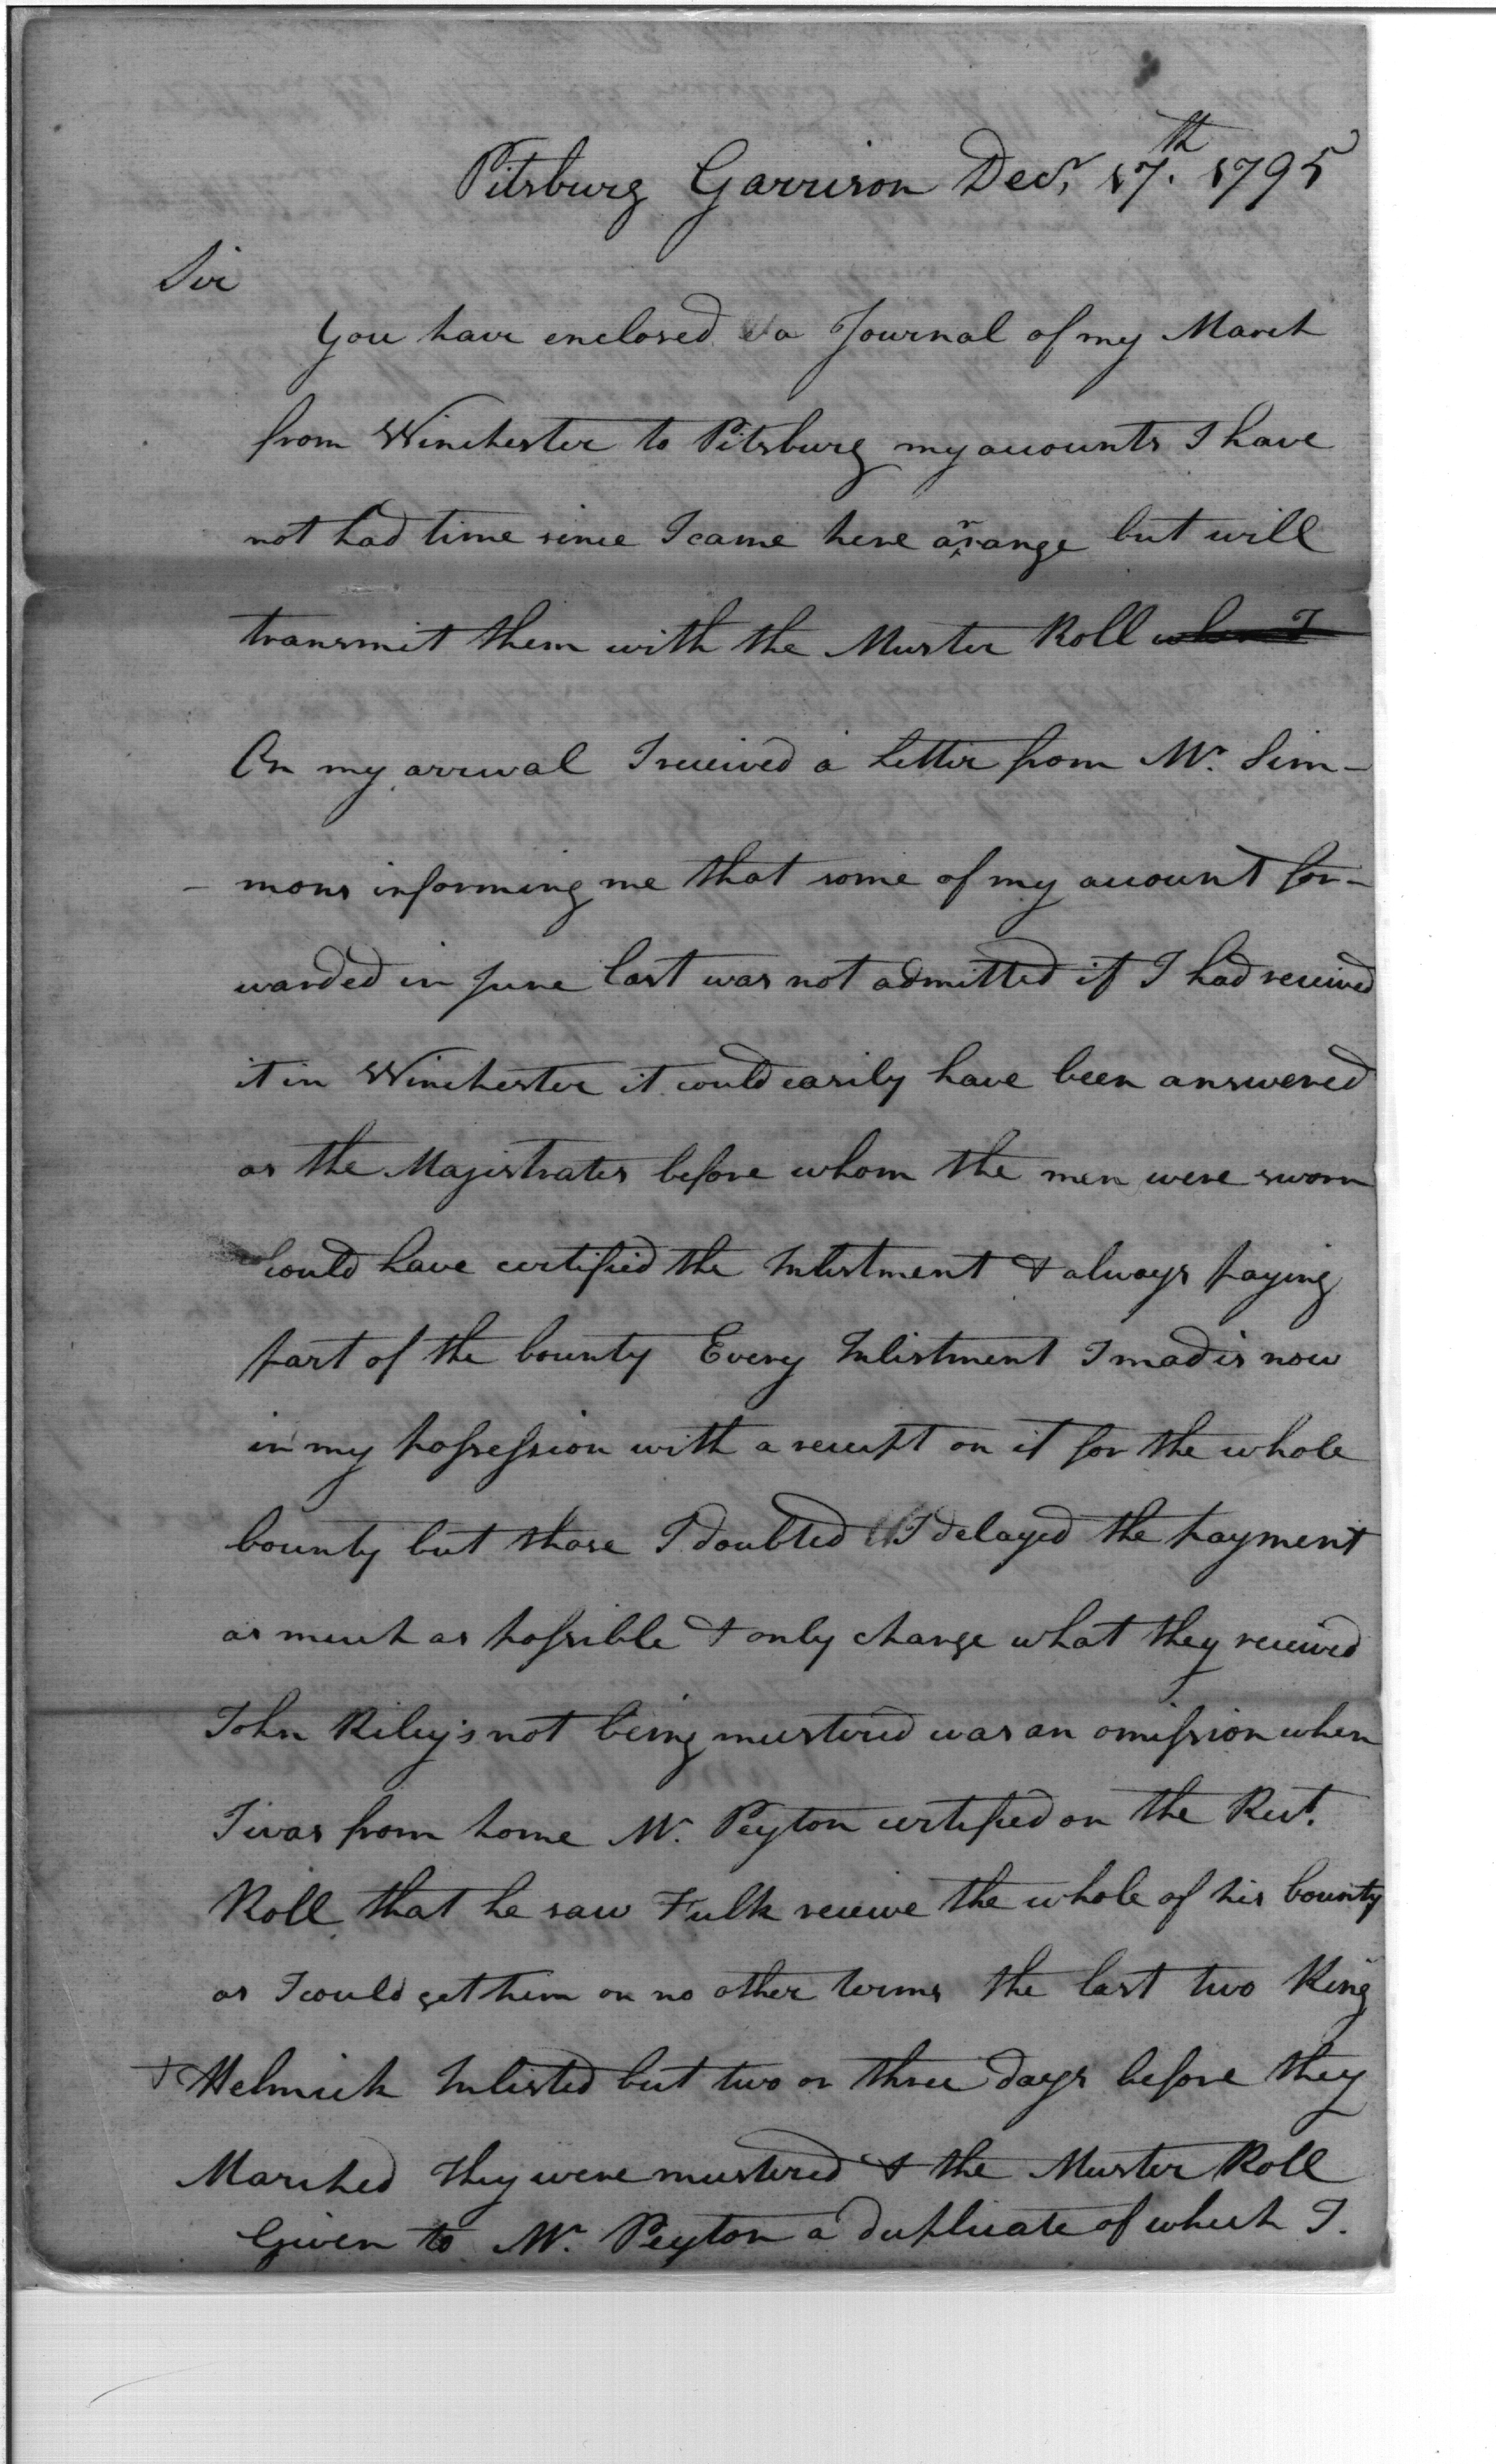 Pitsburg Garrison Decr. 17th. 1795
Sir
You have enclosed a Journal of my March
from Winchester to Pitsburg my accounts I have
not had time since I came here arrange but will
transmit them with the Muster Roll when I
On my arrival I received a Letter from Mr. Sim-
- mons informing me that some of my account for-
warded in June last was not admitted if I had received
it in Winchester it could easily have been answered
as the Magistrates before whom the men were sworn
could have certified the Inlistment & always paying
part of the bounty Every Inlistment I mad is now
in my possession with a receipt on it for the whole
bounty but those I doubted I delayed the payment
as much as possible & only charge what they received
John Riley's not being mustered was an omission when
I was from home Mr. Peyton certified on the Rect.
Roll that he saw Fulk receive the whole of his bounty
as I could get him on no other terms the last two King
& Helmick Inlisted but two or three days before they
Marched they were mustered & the Muster Roll
Given to Mr. Peyton a duplicate of which I.